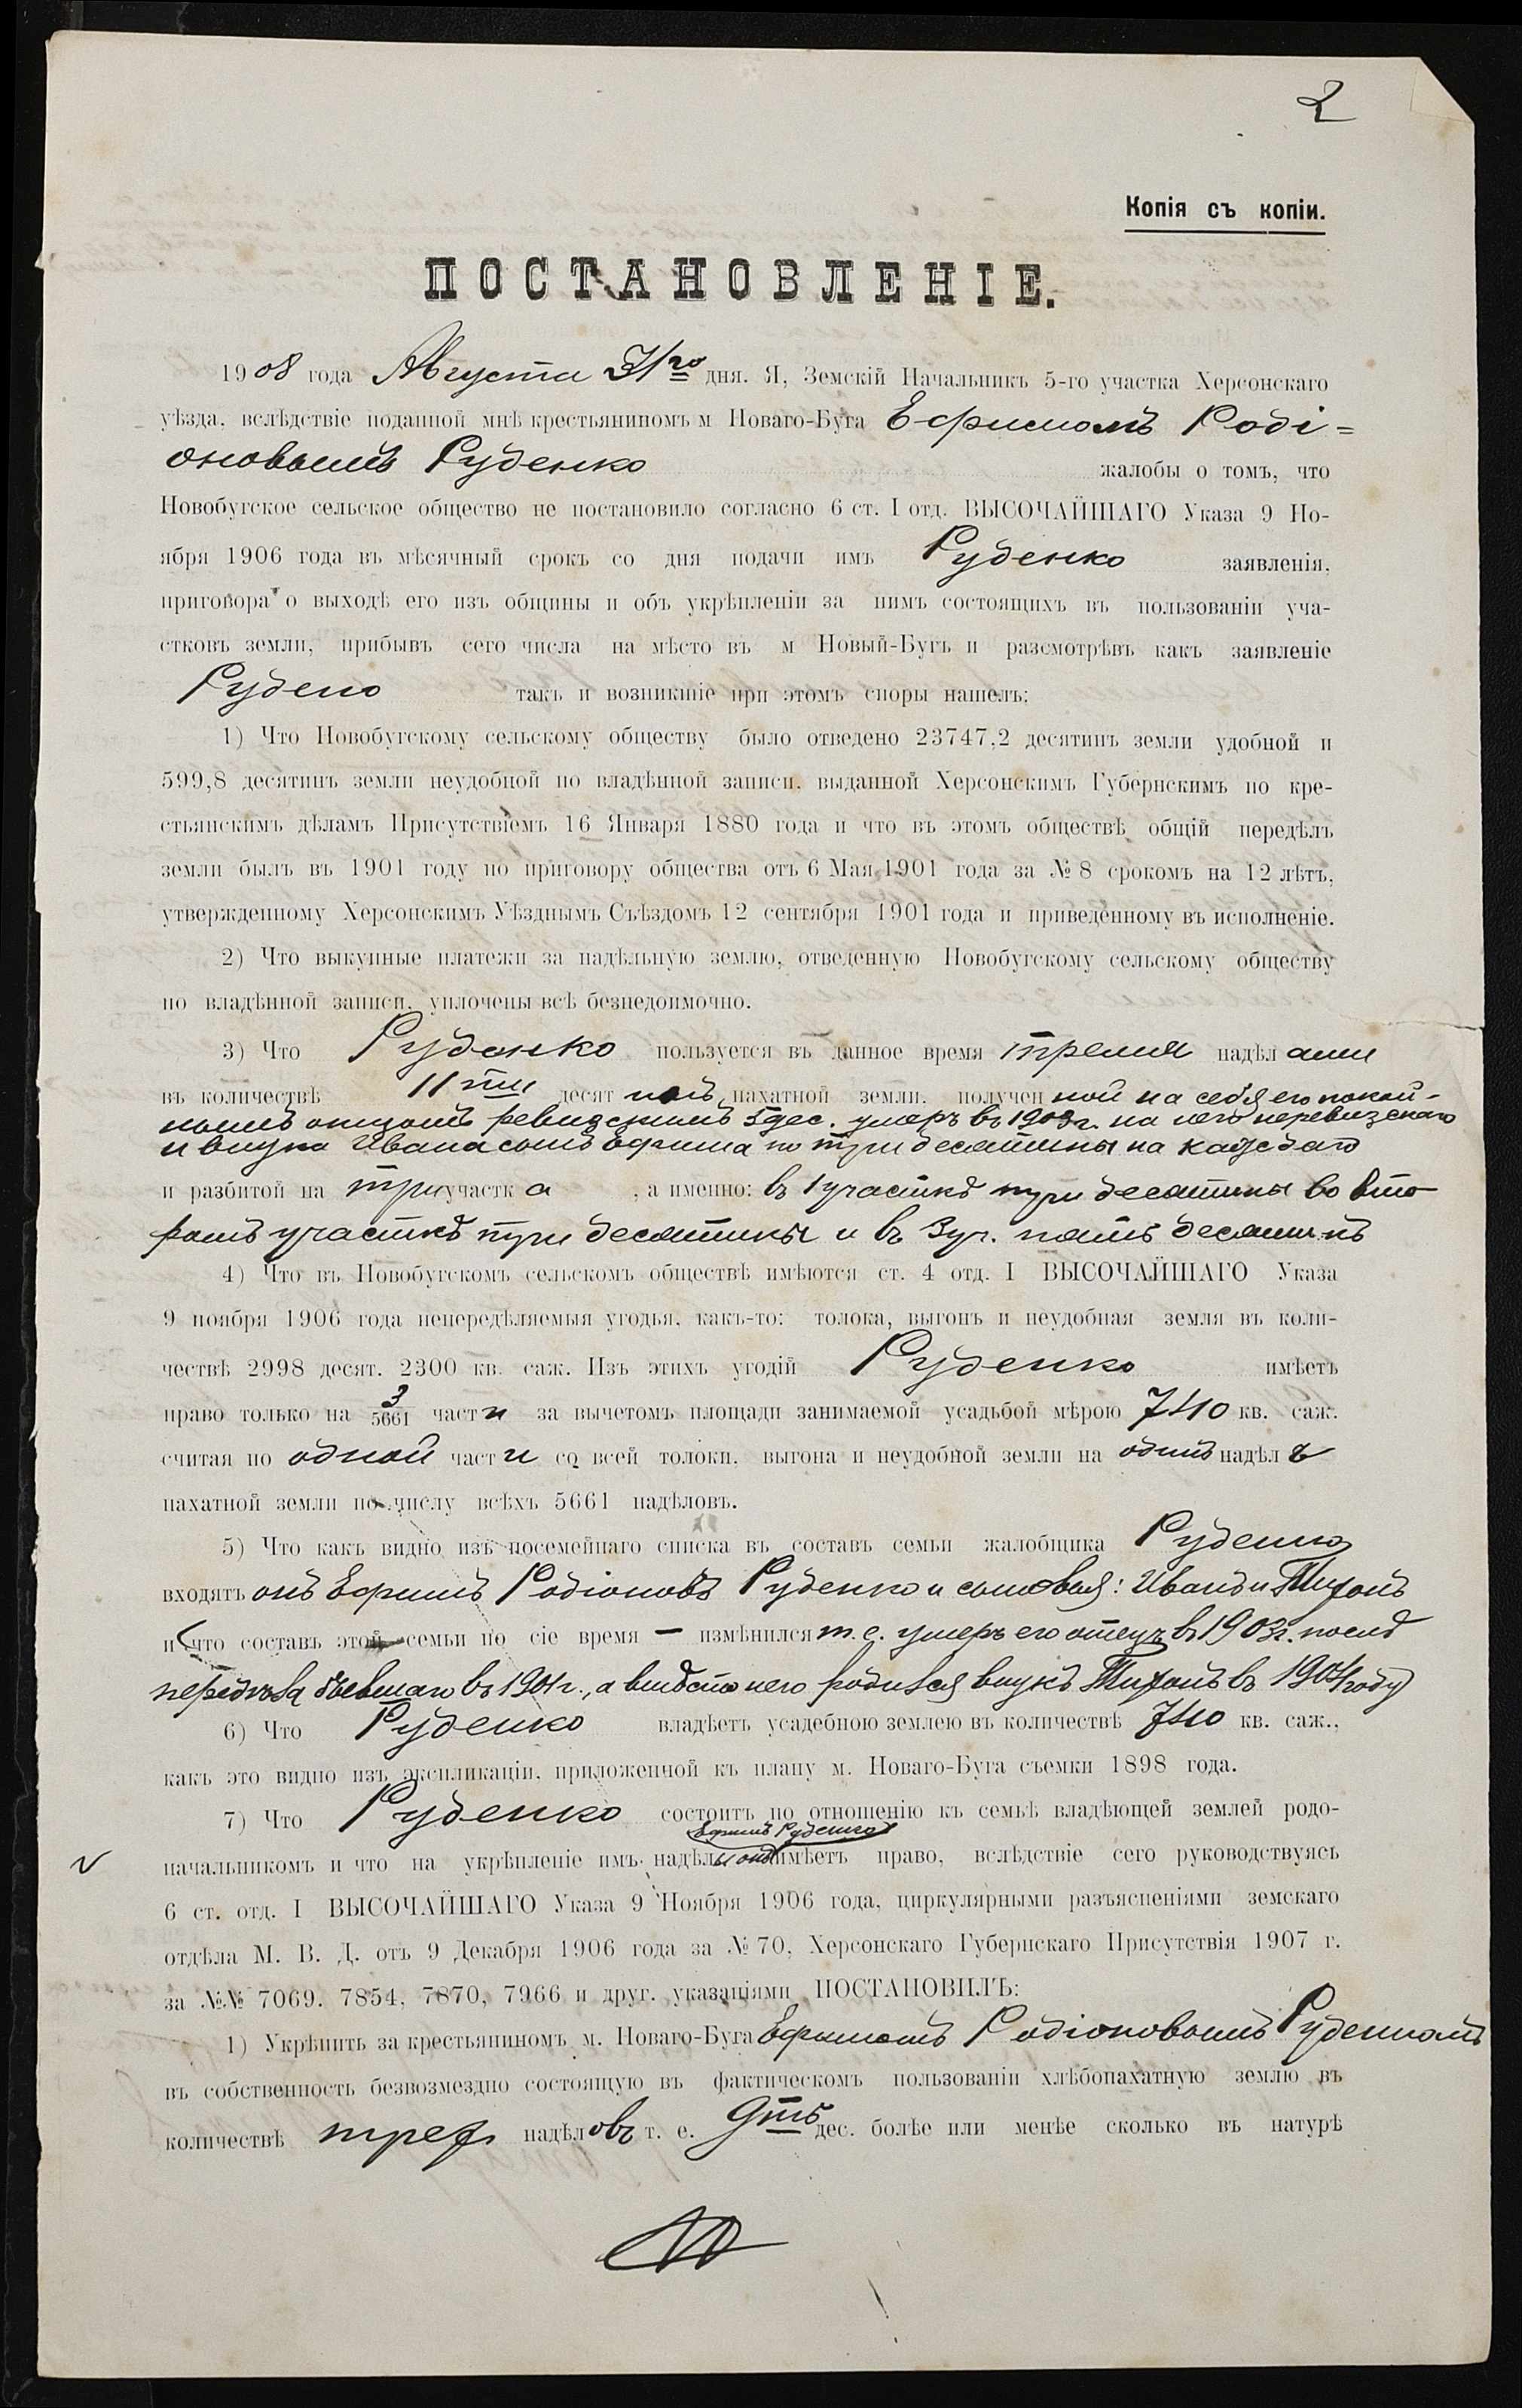 2
Копія съ копіи.
ПОСТАНОВЛЕНІЕ.
1908 года Августа 31го дня. Я, Земскій Начальникъ 5-го участка Херсонскаго
уѣзда, вслѣдствіе поданной мнѣ крестьяниномъ м Новаго-Буга Ефимомъ Роді=
оновымъ Руденко жалобы о томъ, что
Новобугское сельское общество не постановило согласно 6 ст. I отд. ВЫСОЧАЙШАГО Указа 9 Но-
ября 1906 года въ мѣсячный срокъ со дня подачи имъ Руденко заявленія,
приговора о выходѣ его изъ общины и объ укрѣпленіи за нимъ состоящихъ въ пользованіи уча-
стковъ земли, прибывъ сего числа на мѣсто въ м Новый-Бугъ и разсмотрѣвъ какъ заявленіе
Рудено такъ и возникшіе при этомъ споры нашелъ:
1) Что Новобугскому сельскому обществу было отведено 23747,2 десятинъ земли удобной и
599,8 десятинъ земли неудобной по владѣнной записи, выданной Херсонскимъ Губернскимъ по кре-
стьянскимъ дѣламъ Присутствіемъ 16 Января 1880 года и что въ этомъ обществѣ общій передѣлъ
земли былъ въ 1901 году по приговору общества отъ 6 Мая 1901 года за № 8 срокомъ на 12 лѣтъ,
утвержденному Херсонскимъ Уѣзднымъ Съѣздомъ 12 сентября 1901 года и приведенному въ исполненіе.
2) Что выкупные платежи за надѣльную землю, отведенную Новобугскому сельскому обществу
по владѣнной записи, уплочены всѣ безнедоимочно.
3) Что Руденко пользуется въ данное время тремя надѣлами
въ количествѣ 11ти десятиной, пахатной земли, полученной на себя его покой-
нымъ отцомъ ревизскимъ 5 дес. умеръ въ 1903 г. на него неревизскаго
и внука Ивана сына Ефима по три десятины на каждаго
и разбитой на три участка, а именно: въ 1 участкѣ три десятины во вто-
ромъ участкѣ три десятины и въ 3 уч. пять десятинъ
4) Что въ Новобугскомъ сельскомъ обществѣ имѣются ст. 4 отд. I ВЫСОЧАЙШАГО Указа
9 ноября 1906 года непередѣляемыя угодья, какъ-то: толока, выгонъ и неудобная земля въ коли-
чествѣ 2998 десят. 2300 кв. саж. Изъ этихъ угодій Руденко имѣетъ
право только на 3/5661 части за вычетомъ площади занимаемой усадьбой мѣрою 740 кв. саж.
считая по одной части со всей толоки, выгона и неудобной земли на одинъ надѣлъ
пахатной земли по числу всѣхъ 5661 надѣловъ.
5) Что какъ видно изъ посемейнаго списка въ составъ семьи жалобщика Руденко
входятъ онъ Ефимъ Родіоновъ Руденко и сыновья: Иванъ и Тихонъ
и что составъ этой семьи по сіе время — измѣнился т. е. умеръ его отецъ въ 1903 г. послѣ
передѣла бывшаго въ 1901 г., а вмѣсто него родился внукъ Тихонъ въ 1904 году
6) Что Руденко владѣетъ усадебною землею въ количествѣ 740 кв. саж.,
какъ это видно изъ экспликаціи, приложенной къ плану м. Новаго-Буга съемки 1898 года.
7) Что Руденко состоитъ по отношенію къ семьѣ владѣющей землей родо-
Ефимъ Руденко
начальникомъ и что на укрѣпленіе имъ надѣлы онъ имѣетъ право, вслѣдствіе сего руководствуясь
6 ст. отд. I ВЫСОЧАЙШАГО Указа 9 Ноября 1906 года, циркулярными разъясненіями земскаго
отдѣла М. В. Д. отъ 9 Декабря 1906 года за № 70, Херсонскаго Губернскаго Присутствія 1907 г.
за №№ 7069. 7854, 7870, 7966 и друг. указаніями ПОСТАНОВИЛЪ:
1) Укрѣпить за крестьяниномъ м. Новаго-Буга Ефимомъ Родіоновымъ Руденкомъ
въ собственность безвозмездно состоящую въ фактическомъ пользованіи хлѣбопахатную землю въ
количествѣ трех надѣловъ т. е. 9ть дес. болѣе или менѣе сколько въ натурѣ